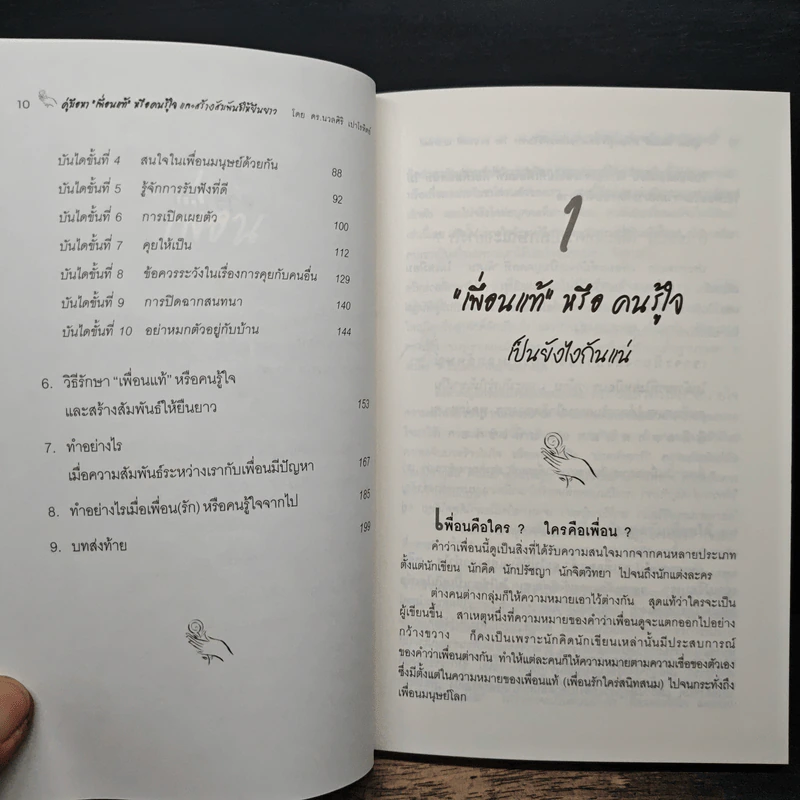 10 คู่มือหา "เพื่อนแท้" หรือคนรู้ใจ และสร้างสัมพันธ์ให้ยืนยาว โดย ดร.นวลศิริ เปาโรหิตย์
บันไดขั้นที่ 4 สนใจในเพื่อนมนุษย์ด้วยกัน 88
บันไดขั้นที่ 5 รู้จักการรับฟังที่ดี 92
บันไดขั้นที่ 6 การเปิดเผยตัว 100
บันไดขั้นที่ 7 คุยให้เป็น 112
บันไดขั้นที่ 8 ข้อควรระวังในเรื่องการคุยกับคนอื่น 129
บันไดขั้นที่ 9 การปิดฉากสนทนา 140
บันไดขั้นที่ 10 อย่าหมกตัวอยู่กับบ้าน 144
6. วิธีรักษา "เพื่อนแท้" หรือคนรู้ใจ
และสร้างสัมพันธ์ให้ยืนยาว 153
7. ทำอย่างไร
เมื่อความสัมพันธ์ระหว่างเรากับเพื่อนมีปัญหา 167
8. ทำอย่างไรเมื่อเพื่อน(รัก) หรือคนรู้ใจจากไป 185
9. บทส่งท้าย 199
1
"เพื่อนแท้" หรือ คนรู้ใจ
เป็นยังไงกันแน่
เพื่อนคือใคร ? ใครคือเพื่อน ?
คำว่าเพื่อนนี้ดูเป็นสิ่งที่ได้รับความสนใจมากจากคนหลายประเภท
ตั้งแต่นักเขียน นักคิด นักปรัชญา นักจิตวิทยา ไปจนถึงนักแต่งละคร
ต่างคนต่างกลุ่มก็ให้ความหมายเอาไว้ต่างกัน สุดแท้ว่าใครจะเป็น
ผู้เขียนขึ้น สาเหตุหนึ่งที่ความหมายของคำว่าเพื่อนดูจะแตกออกไปอย่าง
กว้างขวาง ก็คงเป็นเพราะนักคิดนักเขียนเหล่านั้นมีประสบการณ์
ของคำว่าเพื่อนต่างกัน ทำให้แต่ละคนก็ให้ความหมายตามความเชื่อของตัวเอง
ซึ่งมีตั้งแต่ในความหมายของเพื่อนแท้ (เพื่อนรักใคร่สนิทสนม) ไปจนกระทั่งถึง
เพื่อนมนุษย์โลก